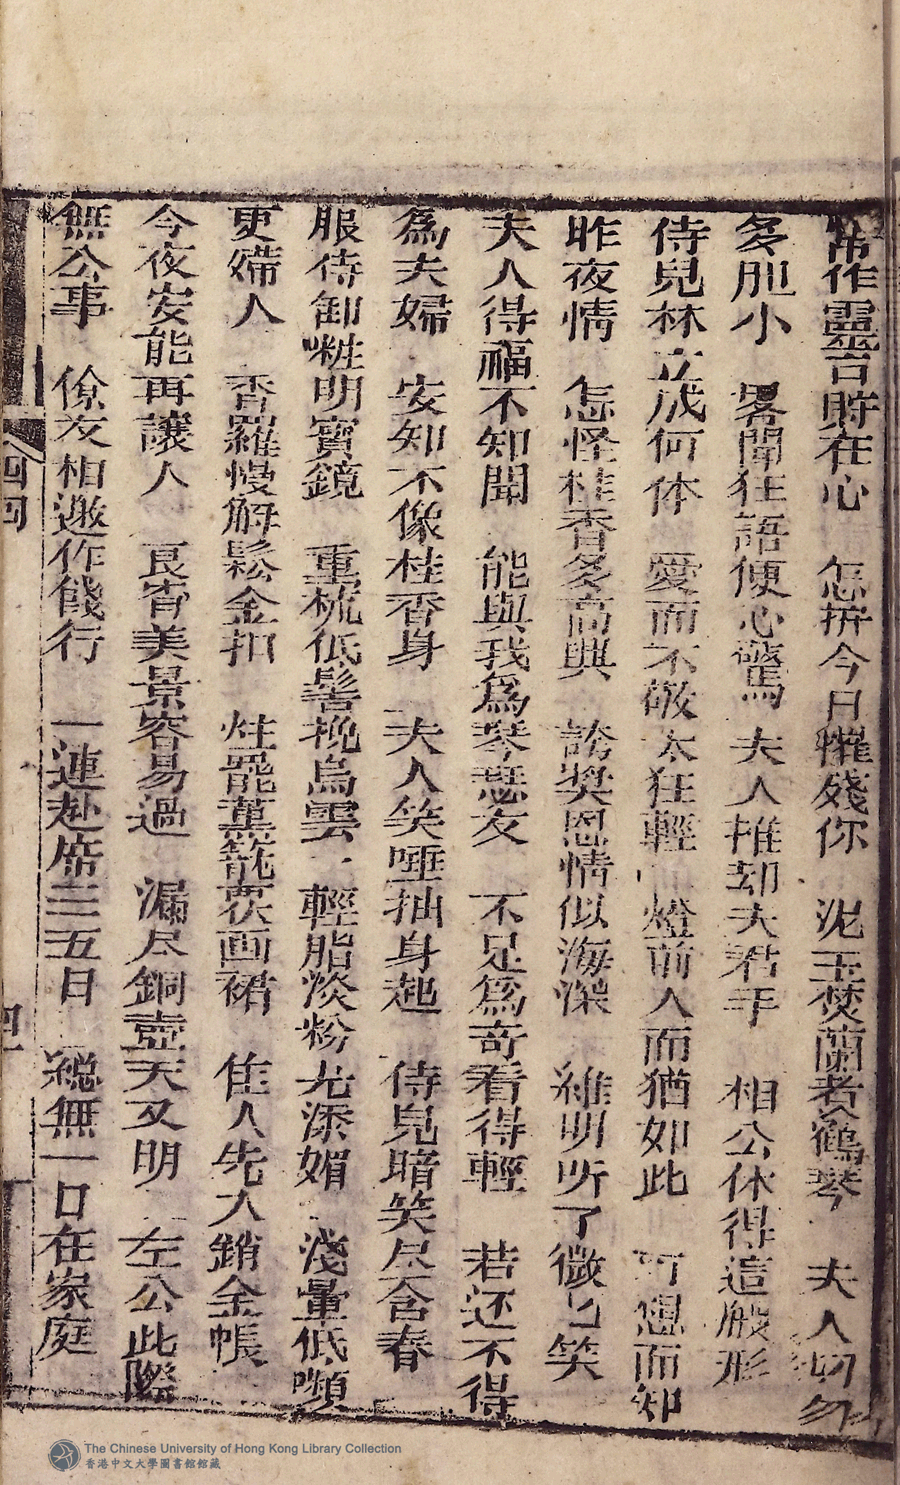 常作靈苦貯在心 怎拚今日摧殘你 泥玉焚蘭煮鶴琴 夫人切勿
多胆小 畧聞狂語便心驚 夫人推却夫君手 相公休得這般形
侍兒林立成何体 愛而不敬太狂輕 燈前人而猶如此 可想而知
昨夜情 怎怪桂香多高興 誇奬恩情似海深 維明听了微〻笑
夫人得福不知聞 能與我爲琴瑟友 不足爲奇看得輕 若还不得
爲夫婦 安知不像桂香身 夫人笑唾抽身起 侍兒暗笑尽含春
服侍卸粧明寳鏡 重梳低髻挽烏雲 輕脂淡粉尤添媚 淺暈低嚬
更媂人 香羅慢解鬆金扣 炷罷薰籠衣画裙 佳人先入銷金帳
今夜安能再讓人 良宵美景容易過 漏尽銅壺天又明 左公此際
無公事 僚友相邀作餞行 一連赴席三五日 縂無一日在家庭
四回